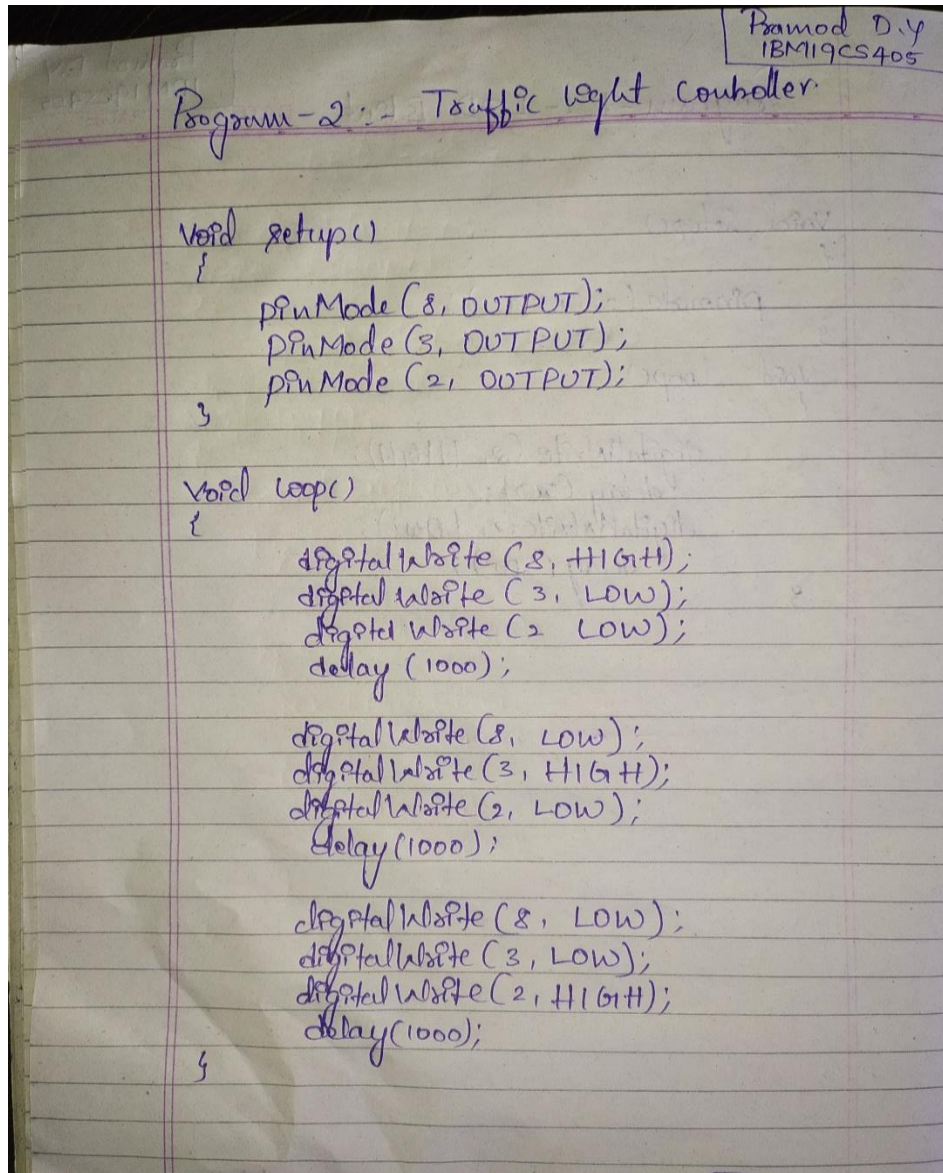 Pramod D.Y
1BM19CS405
Program-2 :- Traffic light Controller.
Void setup()
{
pinMode (8, OUTPUT);
pinMode (3, OUTPUT);
pinMode (2, OUTPUT);
}
Void loop()
{
digitalWrite (8, HIGH);
digitalWrite (3, LOW);
digital Write (2 LOW);
delay (1000);
digitalWrite (8, LOW);
digitalWrite (3, HIGH);
digitalWrite (2, LOW);
delay (1000);
digitalWrite (8, LOW);
digitalWrite (3, LOW);
digitalWrite (2, HIGH);
delay (1000);
}